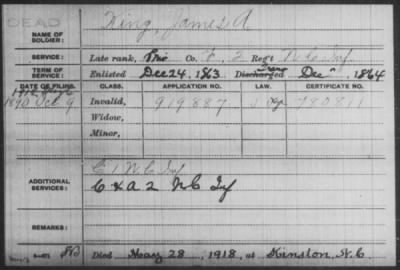 DEAD
King, James A
NAME OF SOLDIER:
SERVICE: Late rank, Priv Co. F, 2 Regt N.C. Inf.
TERM OF SERVICE: Enlisted Dec 24, 1863 Discharged Dec, 1864
DATE OF FILING. CLASS. APPLICATION NO. LAW. CERTIFICATE NO.
1890 Oct 9 Invalid, 919887 780811
Widow,
Minor,
C 1 N.C. Inf
ADDITIONAL SERVICES: C & A 2 N.C. Inf
REMARKS:
Died May 28, 1918, at Kinston, N.C.